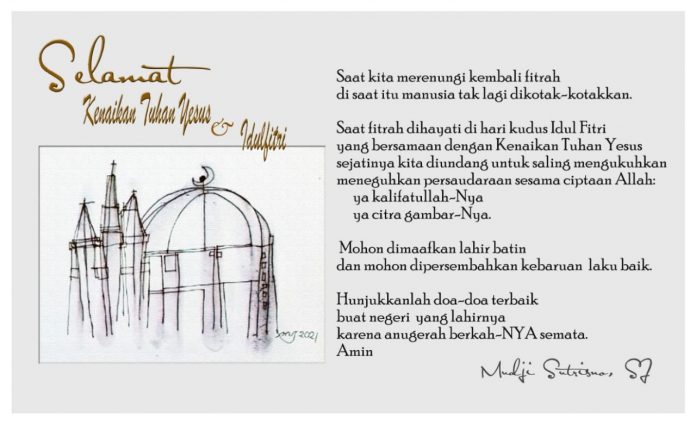 Selamat
Kenaikan Tuhan Yesus
& Idulfitri
Saat kita merenungi kembali fitrah
di saat itu manusia tak lagi dikotak-kotakkan.
Saat fitrah dihayati di hari kudus Idul Fitri
yang bersamaan dengan Kenaikan Tuhan Yesus
sejatinya kita diundang untuk saling mengukuhkan
meneguhkan persaudaraan sesama ciptaan Allah:
ya kalifatullah-Nya
ya citra gambar-Nya.
Mohon dimaafkan lahir batin
dan mohon dipersembahkan kebaruan laku baik.
Hunjukkanlah doa-doa terbaik
buat negeri yang lahirnya
karena anugerah berkah-NYA semata.
Amin
Mudji Sutrisno, SJ
2021